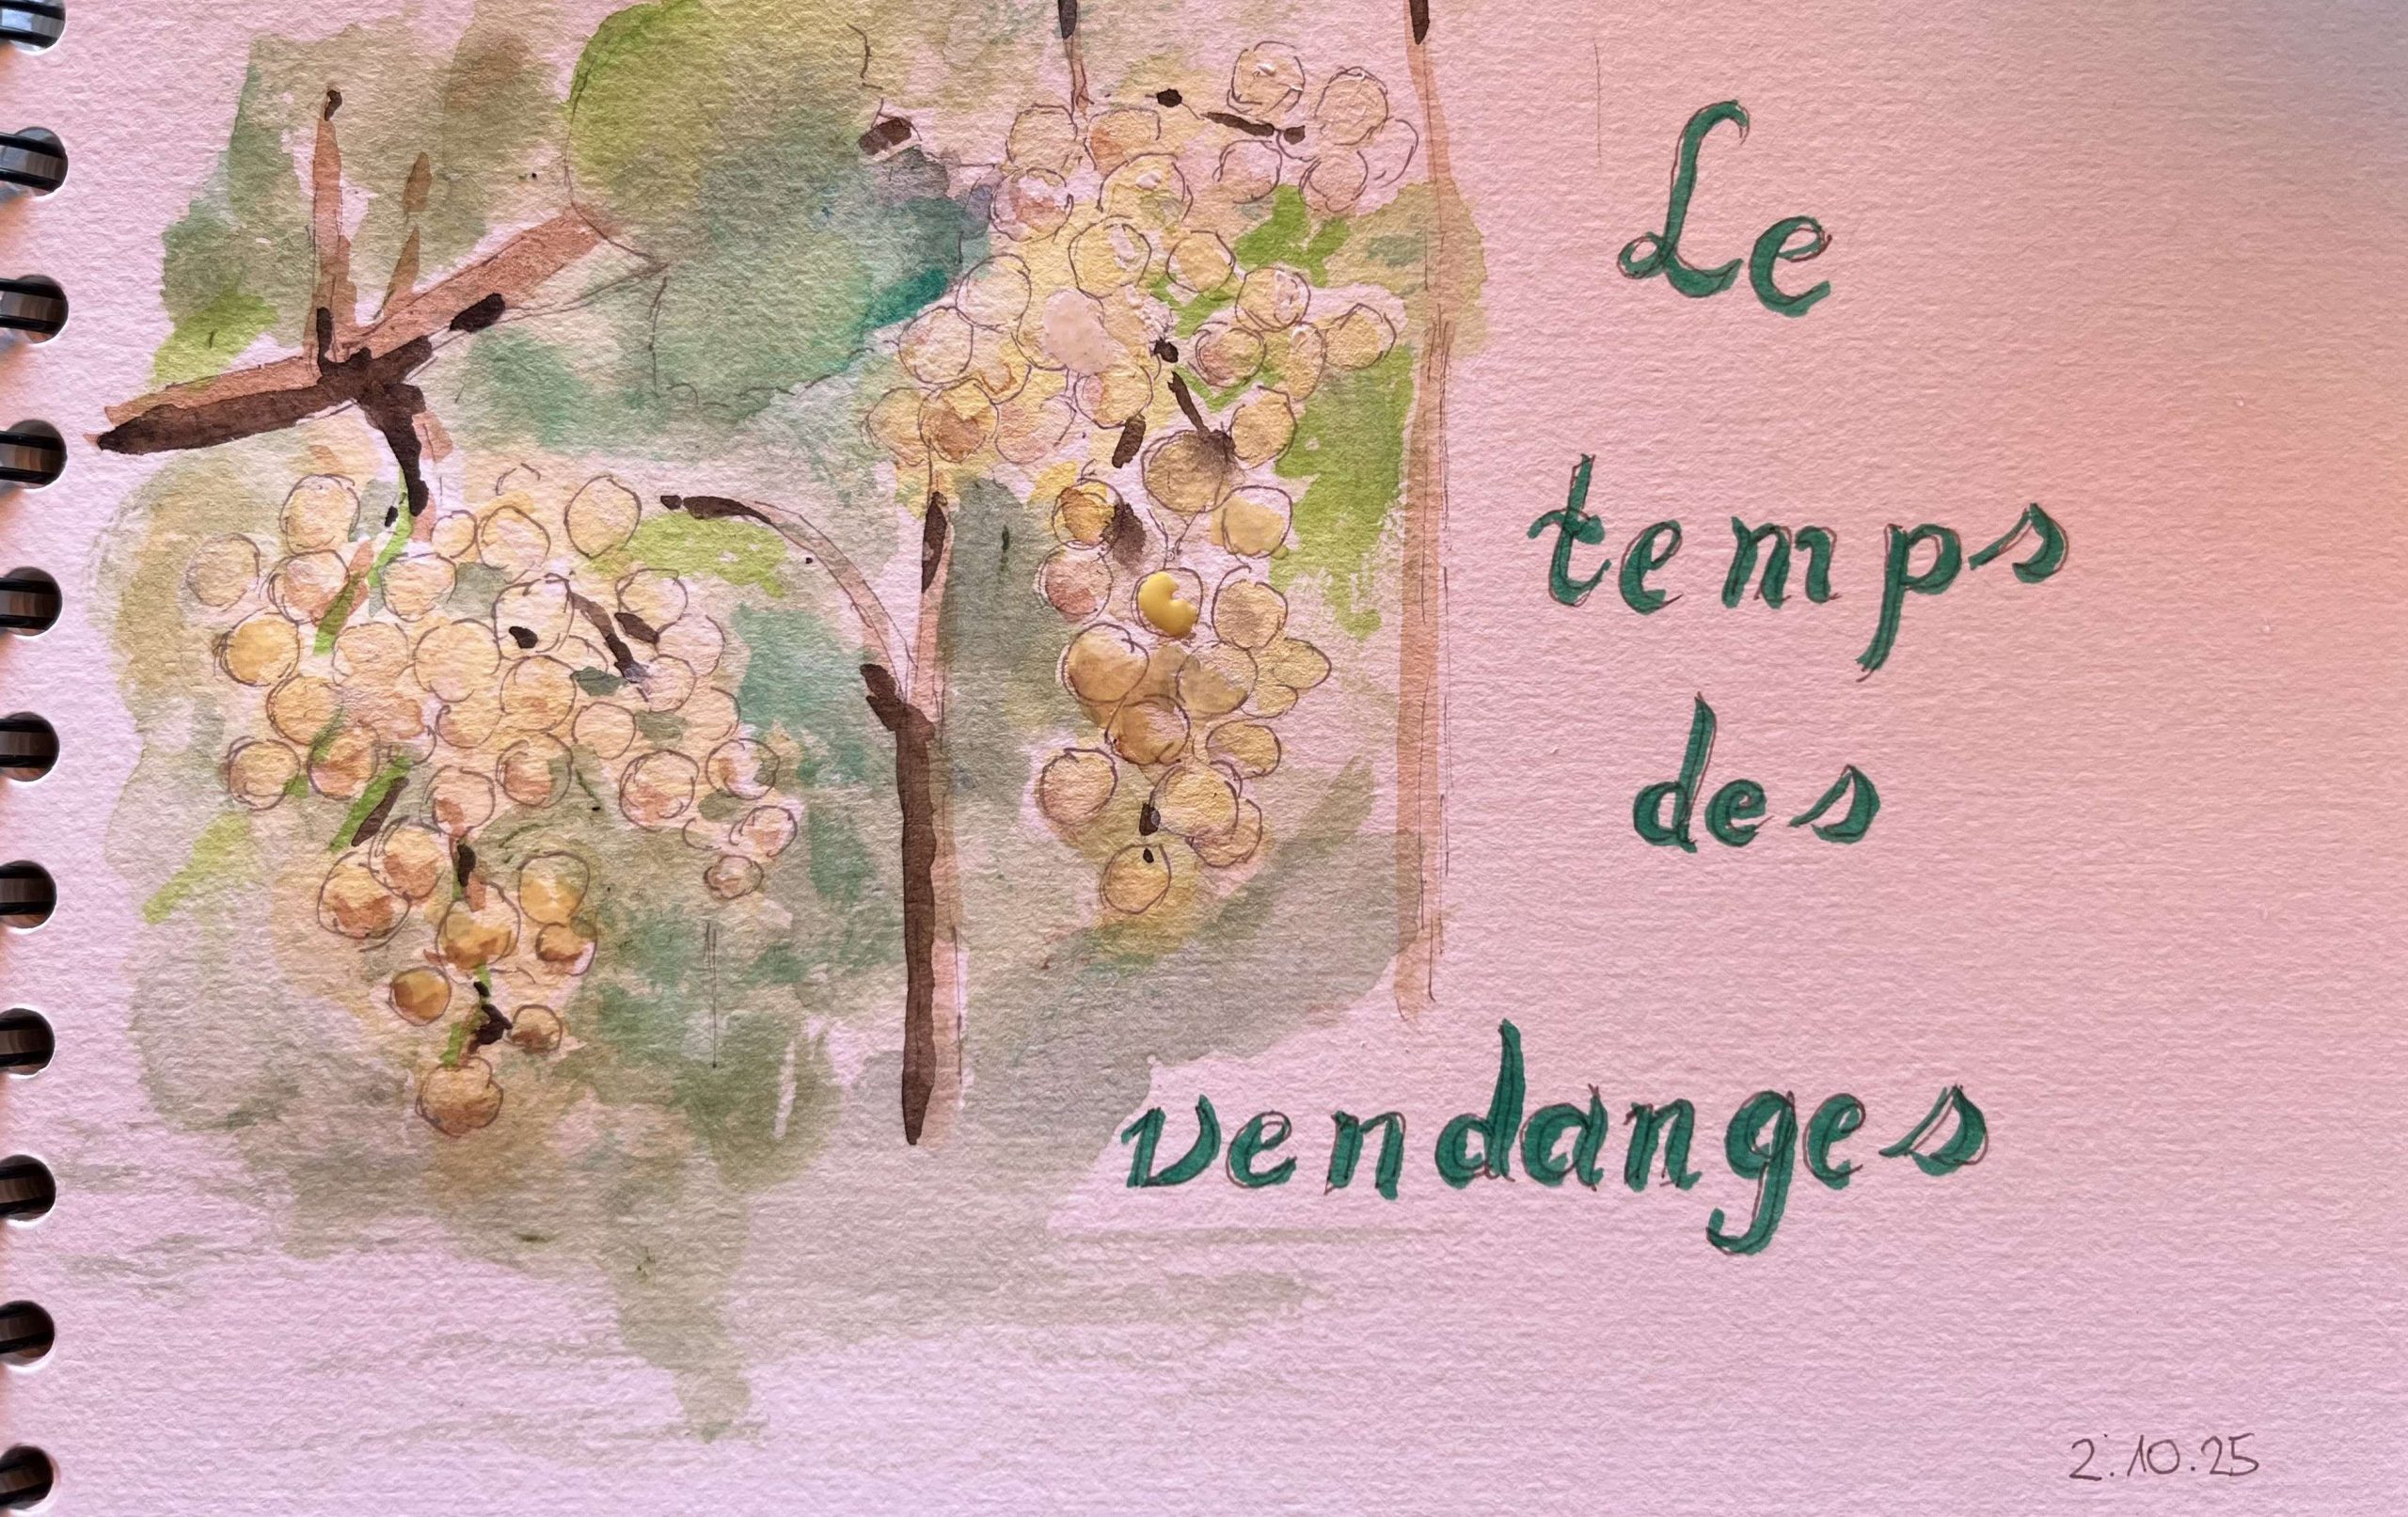 Le
temps
des
vendanges
2.10.25